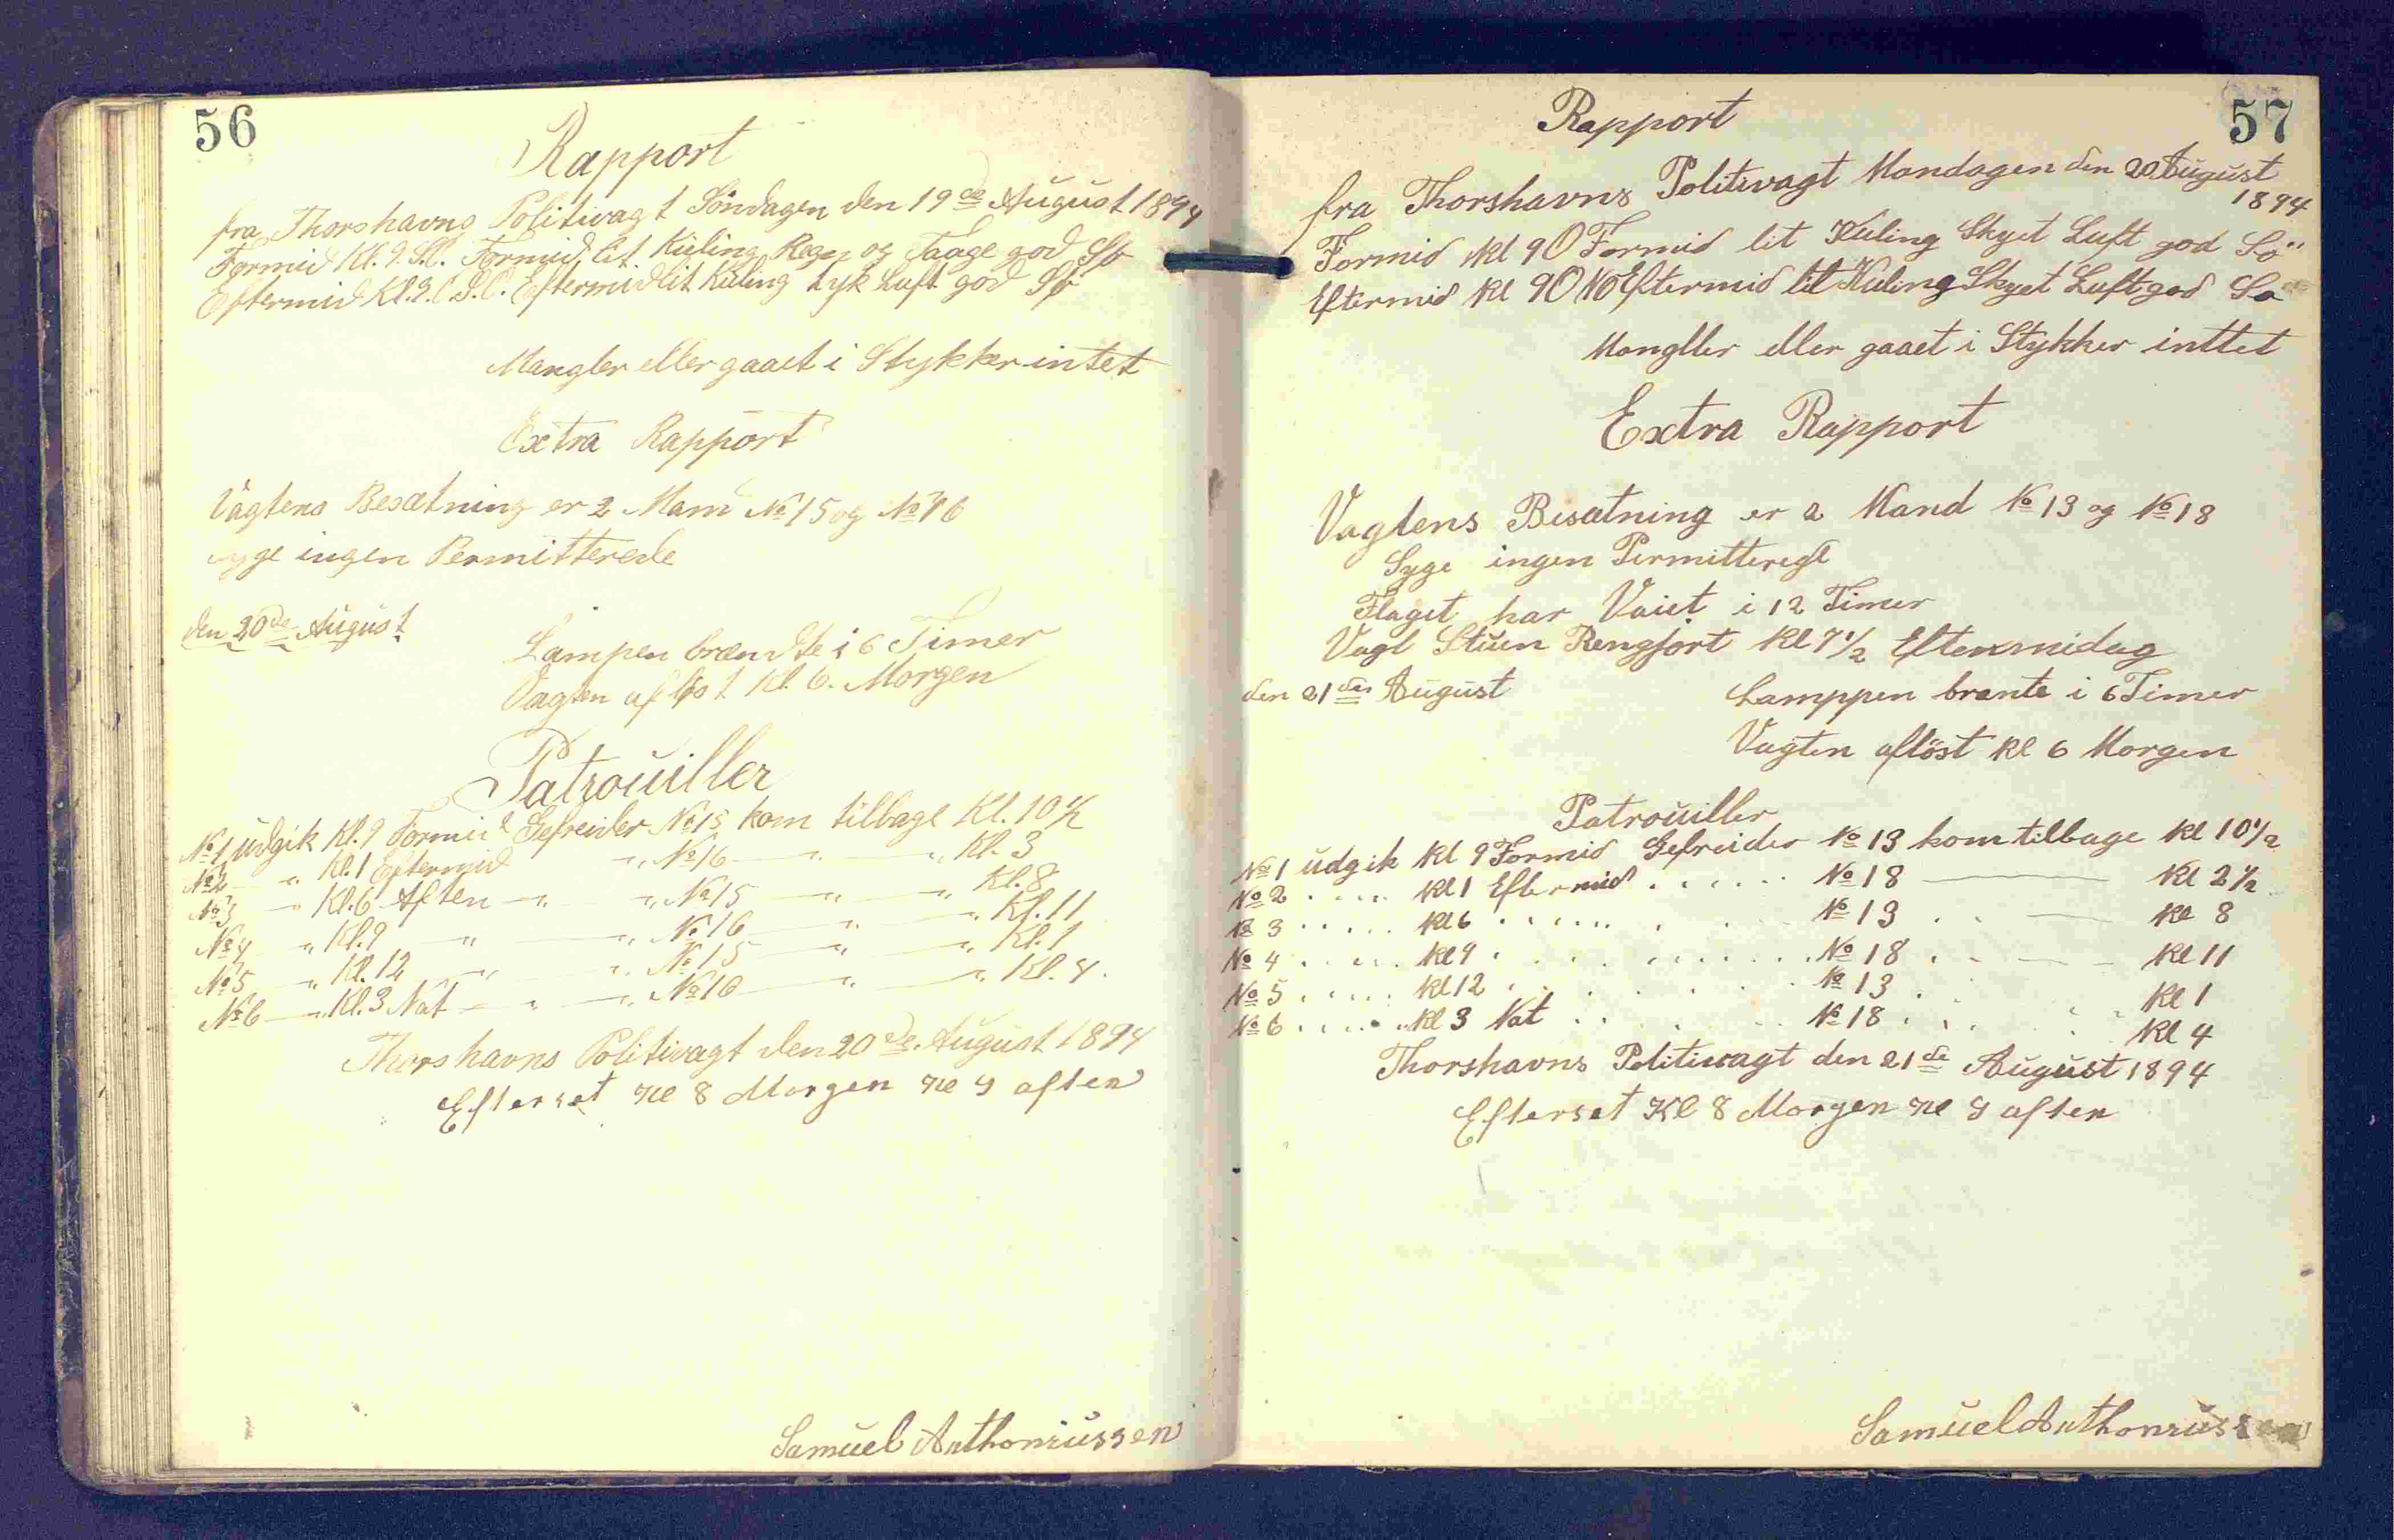 56
Rapport
fra Thorshavns Politivagt Söndagen den 19de August 1894
Formid Kl. 9. S.O. Formid. lit Kuling Regn og Taage god Sø
Eftermid Kl. 9. S.O. Eftermid lit Kuling tyk Luft god Sø
Mangler eller gaaet i Stykker intet
Extra Rapport
Vagtens Besætning er 2 Mand No 15 og No 16
syge ingen Permitterede
den 20de August
Lampen brændte i 6 Timer
Vagten afløst Kl. 6. Morgen
Patrouiller
No 1 udgik Kl. 9 Formid Gefreider No 15 kom tilbage Kl. 10 1/2
No 2 — " Kl. 1 Eftermid " No 16 — " — " Kl. 3
No 3 — " Kl. 6 Aften — " — " No 15 — " — " Kl. 8
No 4 — " Kl. 9 — " — " No 16 — " — " Kl. 11
No 5 — " Kl. 12 — " — " No 15 — " — " Kl. 1
No 6 — " Kl. 3 Nat — " — " No 16 — " — " Kl. 4.
Thorshavns Politivagt den 20de August 1894
Efterset Kl 8 Morgen Kl 9 aften
Samuel Anthoniussen
57
Rapport
fra Thorshavns Politivagt Mandagen den 20 August
1894
Formid kl 9 O Formid lit Kuling Skyet Luft god Sö
Eftermid kl 9 O NO Eftermid lit Kuling Skyet Luft god Sö
Mangller eller gaaet i Stykker inttet
Extra Rapport
Vagtens Besætning er 2 Mand No 13 og No 18
Syge ingen Permitterede
Flaget har Vaiet i 12 Timer
Vagt Stuen Rengjort Kl 7 1/2 Eftermidag
den 21den August
Lamppen brante i 6 Timer
Vagten aflöst kl 6 Morgen
Patrouiller
No 1 udgik kl 9 Formid Gefreider No 13 kom tilbage kl 10 1/2
No 2 . . . . kl 1 Eftermid . . . . . No 18 — kl 2 1/2
No 3 . . . . kl 6 . . . . . . No 13 . . — kl 8
No 4 . . . . kl 9 . . . . . . No 18 . . — kl 11
No 5 . . . . kl 12 . . . . . . No 13 . . kl 1
No 6 . . . . kl 3 Nat . . . . No 18 . . . kl 4
Thorshavns Politivagt den 21de August 1894
Efterset Kl 8 Morgen Kl 9 aften
Samuel Anthoniussen